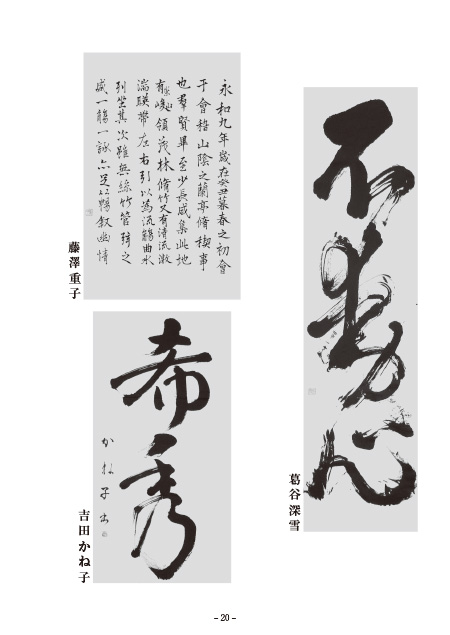 不動心
葛谷 深雪
永和九年歳在癸丑暮春之初會
于會稽山陰之蘭亭脩禊事
也羣賢畢至少長咸集此地
有崇山峻領茂林脩竹又有清流激
湍暎帶左右引以為流觴曲水
列坐其次雖無絲竹管弦之
盛一觴一詠亦足以暢叙幽情
藤澤 重子
希秀
かね子書
吉田 かね子
- 20 -